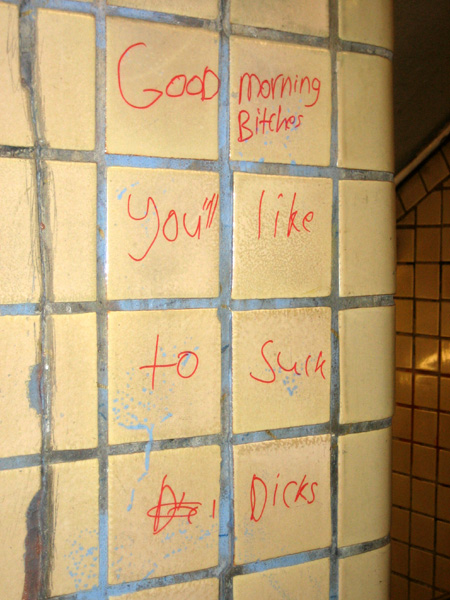 Good morning
Bitches
You'll like
to Suck
Dicks